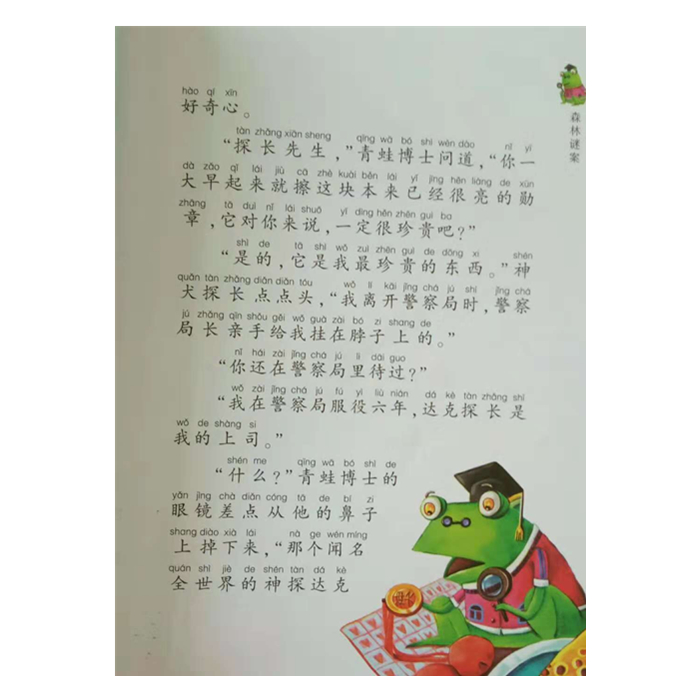 hào qí xīn
好奇心。
tàn zhǎng xiān sheng qīng wā bó shì wèn dào nǐ yí
“探长先生，”青蛙博士问道，“你一
dà zǎo qǐ lái jiù cā zhè kuài běn lái yǐ jīng hěn liàng de xūn
大早起来就擦这块本来已经很亮的勋
zhāng tā duì nǐ lái shuō yí dìng hěn zhēn guì ba
章，它对你来说，一定很珍贵吧？”
shì de tā shì wǒ zuì zhēn guì de dōng xi shén
“是的，它是我最珍贵的东西。”神
quǎn tàn zhǎng diǎn diǎn tóu wǒ lí kāi jǐng chá jú shí jǐng chá
犬探长点点头，“我离开警察局时，警察
jú zhǎng qīn shǒu gěi wǒ guà zài bó zi shang de
局长亲手给我挂在脖子上的。”
nǐ hái zài jǐng chá jú li dāi guo
“你还在警察局里待过？”
wǒ zài jǐng chá jú fú yì liù nián dá kè tàn zhǎng shì
“我在警察局服役六年，达克探长是
wǒ de shàng si
我的上司。”
shén me qīng wā bó shì de
“什么？”青蛙博士的
yǎn jìng chà diǎn cóng tā de bí zi
眼镜差点从他的鼻子
shang diào xià lái nà ge wén míng
上掉下来，“那个闻名
quán shì jiè de shén tàn dá kè
全世界的神探达克
森林谜案